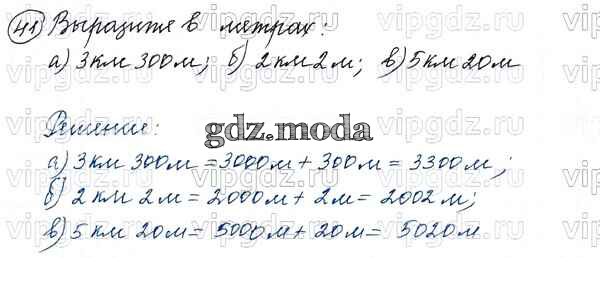 41) Выразите в метрах:
а) 3 км 300 м; б) 2 км 2 м; в) 5 км 20 м
Решение:
gdz.moda
а) 3 км 300 м = 3000 м + 300 м = 3300 м;
б) 2 км 2 м = 2000 м + 2 м = 2002 м;
в) 5 км 20 м = 5000 м + 20 м = 5020 м
vipgdz.ru